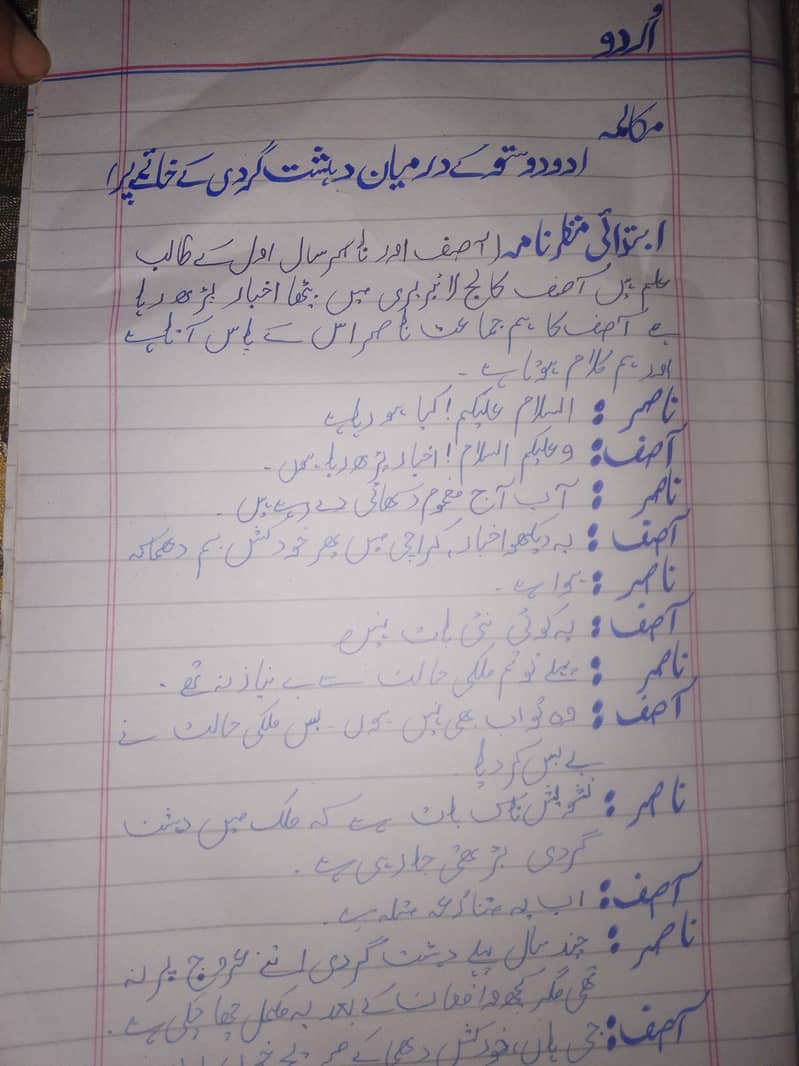 اُردو
مکالمہ
(دو دوستو کے درمیان دہشت گردی کے خاتمے پر)
ابتدائی منظر نامہ (آصف اور ناصر سال اول کے طالب
علم ہیں آصف کالج لائبریری میں بیٹھا اخبار پڑھ رہا
ہے آصف کا ہم جماعت ناصر اس کے پاس آتا ہے
اور ہم کلام ہوتا ہے -
ناصر : السلام علیکم! کیا ہو رہا ہے
آصف : وعلیکم السلام! اخبار پڑھ رہا ہوں -
ناصر : آپ آج مغموم دکھائی دے رہے ہیں -
آصف : یہ دیکھو اخبار، کراچی میں پھر خودکش بم دھماکہ
ناصر : ہوا ہے -
آصف : یہ کوئی نئی بات نہیں
ناصر : پہلے تو تم ملکی حالت سے بے نیاز نہ تھے -
آصف : وہ تو اب بھی نہیں ہوں - بس ملکی حالت نے
بے بس کر دیا
ناصر : تشویش ناک بات ہے کہ ملک میں دہشت
گردی بڑھتی جا رہی ہے -
آصف : اب یہ متنازعہ مسئلہ ہے -
ناصر : چند سال پہلے دہشت گردی اتنے عروج پر نہ
تھی مگر کچھ واقعات کے بعد یہ مکمل چھا چکی ہے -
آصف : جی ہاں، خودکش دھماکے